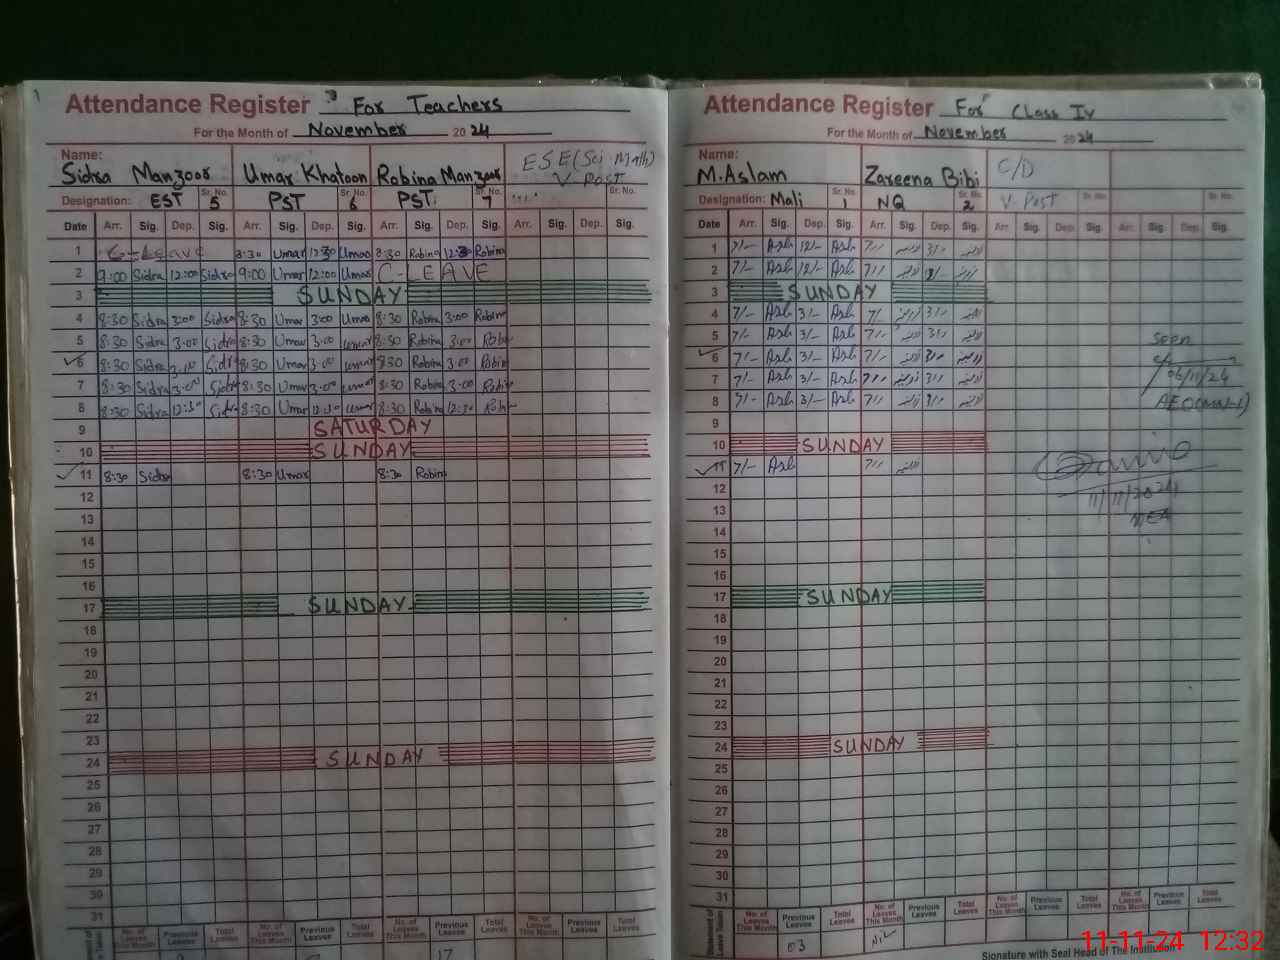 Attendance Register For Teachers
For the Month of November 2024
Name:
Sidra Manzoor Umar Khatoon Robina Manzoor ESE (Sci Math)
V-Post
Designation: EST Sr. No. 5 PST Sr. No. 6 PST. Sr. No. 7 Sr. No.
Date Arr. Sig. Dep. Sig. Arr. Sig. Dep. Sig. Arr. Sig. Dep. Sig. Arr. Sig. Dep. Sig.
1 C-Leave 8:30 Umar 12:30 Umar 8:30 Robina 12:30 Robina
2 9:00 Sidra 12:00 Sidra 9:00 Umar 12:00 Umar C-LEAVE
3 SUNDAY
4 8:30 Sidra 3:00 Sidra 8:30 Umar 3:00 Umar 8:30 Robina 3:00 Robina
5 8:30 Sidra 3:00 Sidra 8:30 Umar 3:00 Umar 8:30 Robina 3:00 Robina
6 8:30 Sidra 3:00 Sidra 8:30 Umar 3:00 Umar 8:30 Robina 3:00 Robina
7 8:30 Sidra 3:00 Sidra 8:30 Umar 3:00 Umar 8:30 Robina 3:00 Robina
8 8:30 Sidra 12:30 Sidra 8:30 Umar 12:30 Umar 8:30 Robina 12:30 Robina
9 SATURDAY
10 SUNDAY
11 8:30 Sidra 8:30 Umar 8:30 Robina
12
13
14
15
16
17 SUNDAY
18
19
20
21
22
23
24 SUNDAY
25
26
27
28
29
30
31
No. of Leaves This Month Previous Leaves Total Leaves No. of Leaves This Month Previous Leaves Total Leaves No. of Leaves This Month Previous Leaves Total Leaves No. of Leaves This Month Previous Leaves Total Leaves
17
Attendance Register For Class IV
For the Month of November 2024
Name:
M.Aslam Zareena Bibi C/D
Designation: Mali Sr. No. 1 NQ Sr. No. 2 V-Post Sr. No. Sr. No.
Date Arr. Sig. Dep. Sig. Arr. Sig. Dep. Sig. Arr. Sig. Dep. Sig. Arr. Sig. Dep. Sig.
1 7/- Asl 12/- Asl
2 7/- Asl 12/- Asl
3 SUNDAY
4 7/- Asl 3/- Asl
5 7/- Asl 3/- Asl
seen
6 7/- Asl 3/- Asl
06/11/24
7 7/- Asl 3/- Asl
8 7/- Asl 3/- Asl
9
10 SUNDAY
11 7/- Asl
11/11/2024
MEA
12
13
14
15
16
17 SUNDAY
18
19
20
21
22
23
24 SUNDAY
25
26
27
28
29
30
31
No. of Leaves This Month Previous Leaves Total Leaves No. of Leaves This Month Previous Leaves Total Leaves No. of Leaves This Month Previous Leaves Total Leaves No. of Leaves This Month Previous Leaves Total Leaves
03 Nil
Signature with Seal Head of The Institution
11-11-24 12:32